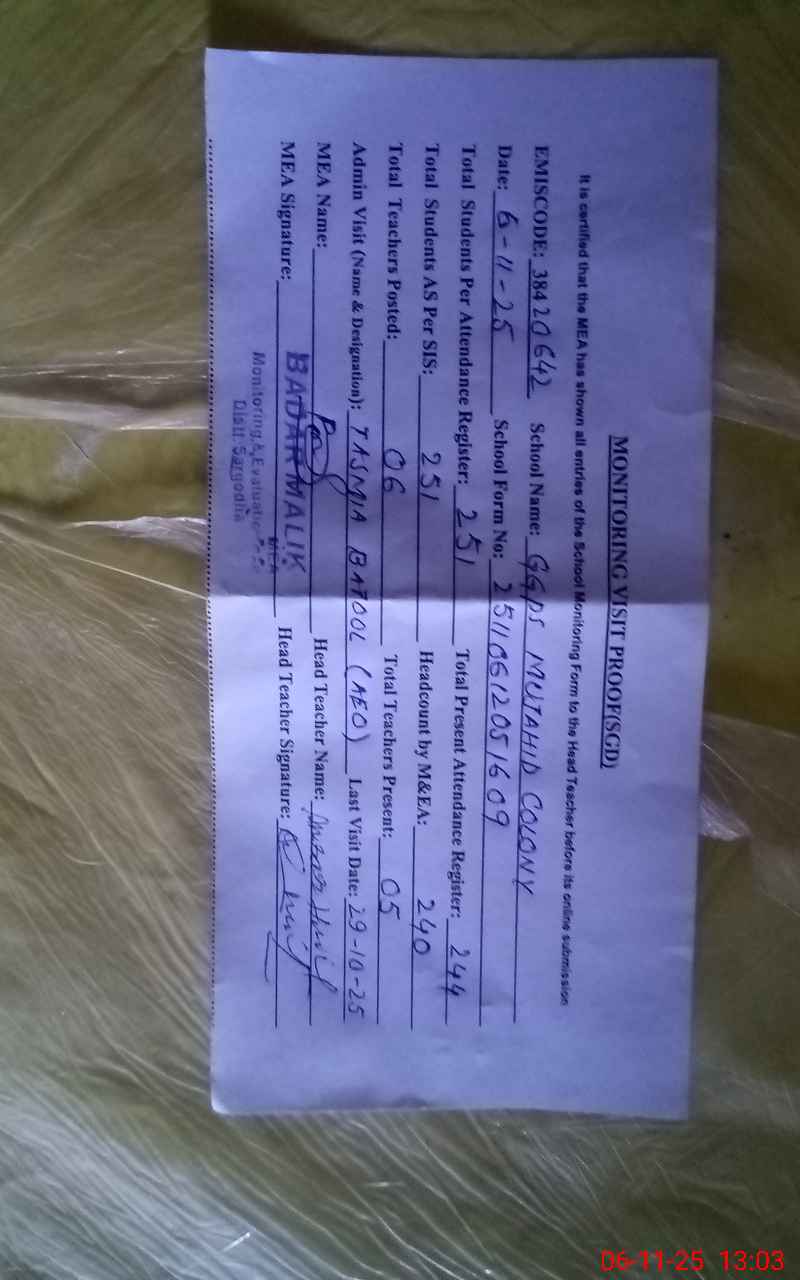 MONITORING VISIT PROOF(SGD)
It is certified that the MEA has shown all entries of the School Monitoring Form to the Head Teacher before its online submission
EMISCODE: 38420642 School Name: GGPS MUJAHID COLONY
Date: 6-11-25 School Form No: 25110612051609
Total Students Per Attendance Register: 251 Total Present Attendance Register: 244
Total Students AS Per SIS: 251 Headcount by M&EA: 240
Total Teachers Posted: 06 Total Teachers Present: 05
Admin Visit (Name & Designation): TASMIA BATOOL (AEO) Last Visit Date: 29-10-25
MEA Name: Head Teacher Name:
MEA Signature: Head Teacher Signature:
BADAR MALIK
MEA
Monitoring & Evaluation
Distt: Sargodha
06-11-25 13:03